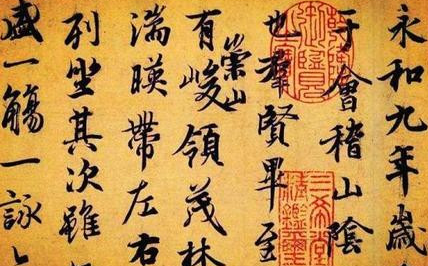 永和九年歲
于會稽山陰
也羣賢畢至
有崇山峻領茂林
湍暎帶左右
列坐其次雖
盛一觴一詠
三希堂
精鑑璽